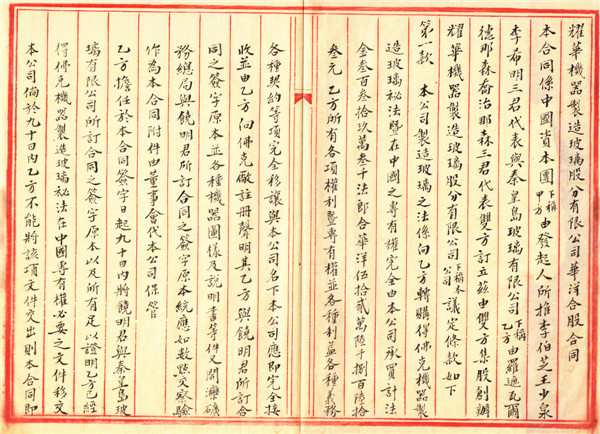 耀華機器製造玻璃股分有限公司華洋合股合同
本合同係中國資本團下稱甲方由發起人所推李伯芝王少泉
李希明三君代表與秦皇島玻璃有限公司下稱乙方由羅遜瓦爾
德那森喬治那森三君代表雙方訂立茲由雙方集股創辦
耀華機器製造玻璃股分有限公司下稱本公司議定條款如下
第一款 本公司製造玻璃之法係向乙方轉購得佛克機器製
造玻璃祕法暨在中國之專有權完全由本公司承買計法
金叁百叁拾玖萬叁千法郎合華洋伍拾貳萬陸千捌百陸拾
叁元 乙方所有各項權利暨專有權並各種利益各種義務
各種契約等項完全移讓與本公司名下本公司應即完全接
收並由乙方向佛克廠註冊聲明其乙方與饒明君所訂合
同之簽字原本並各種機器圖樣及說明書等件又開灤礦
務總局與饒明君所訂合同之簽字原本統應如數點交察驗
作為本合同附件由董事會代本公司保管
乙方擔任於本合同簽字日起九十日內將饒明君與秦皇島玻
璃有限公司所訂合同之簽字原本以及所有足以證明乙方已經
得佛克機器製造玻璃祕法在中國專有權必要之文件移交
本公司倘於九十日內乙方不能將該項文件交出則本合同即